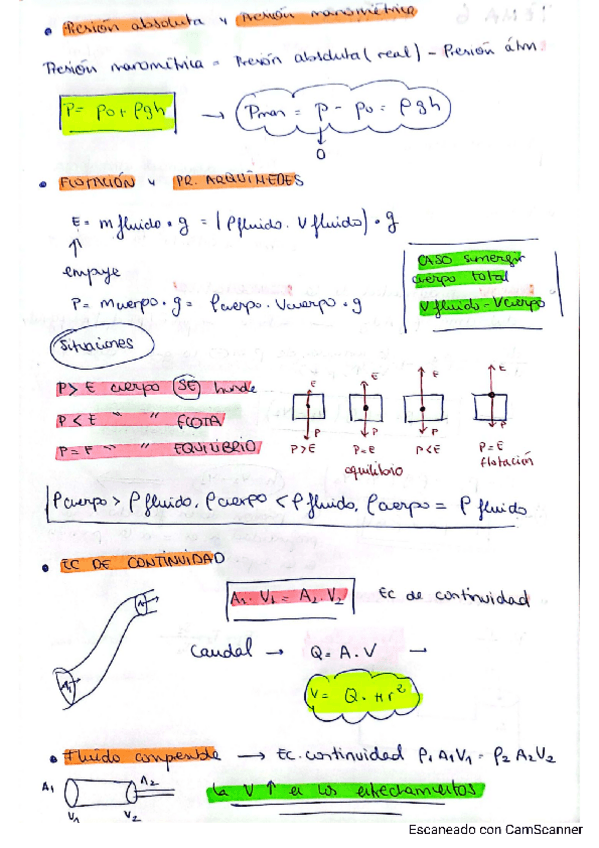 • Presión absoluta y Presión manométrica
Presión manométrica = Presión absoluta (real) - Presión átm.
P = po + ρgh → Pman = p - po = ρgh
↓
0
• FLOTACIÓN y PR. ARQUÍMEDES
E = m fluido • g = (ρ fluido. V fluido) • g
↑
empuje
P = mcuerpo • g = ρcuerpo. Vcuerpo • g
CASO sumergir
cuerpo total
V fluido - Vcuerpo
Situaciones
P > E cuerpo SE hunde
P < E " " FLOTA
P = E " " EQUILIBRIO
E E E E
P P P P
P > E P=E P<E P=E
equilibrio flotación
ρ cuerpo > ρ fluido, ρ cuerpo < ρ fluido, ρ cuerpo = ρ fluido
• EC DE CONTINUIDAD
A1. V1 = A2. V2 Ec de continuidad
A1
Caudal → Q = A. V →
V = Q. πr²
• Fluido compresible → Ec. continuidad ρ1 A1 V1 = ρ2 A2 V2
A1 A2
V1 V2
la V ↑ en los estrechamientos
Escaneado con CamScanner